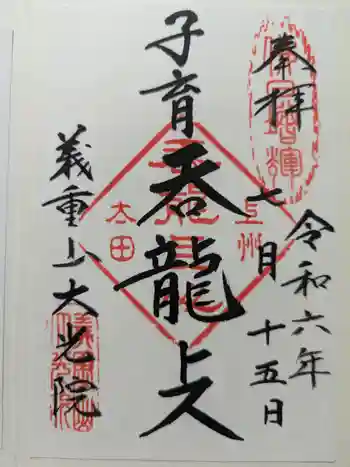 奉拝
令和六年
七月十五日
子育呑龍上人
上州
太田
義重山大光院